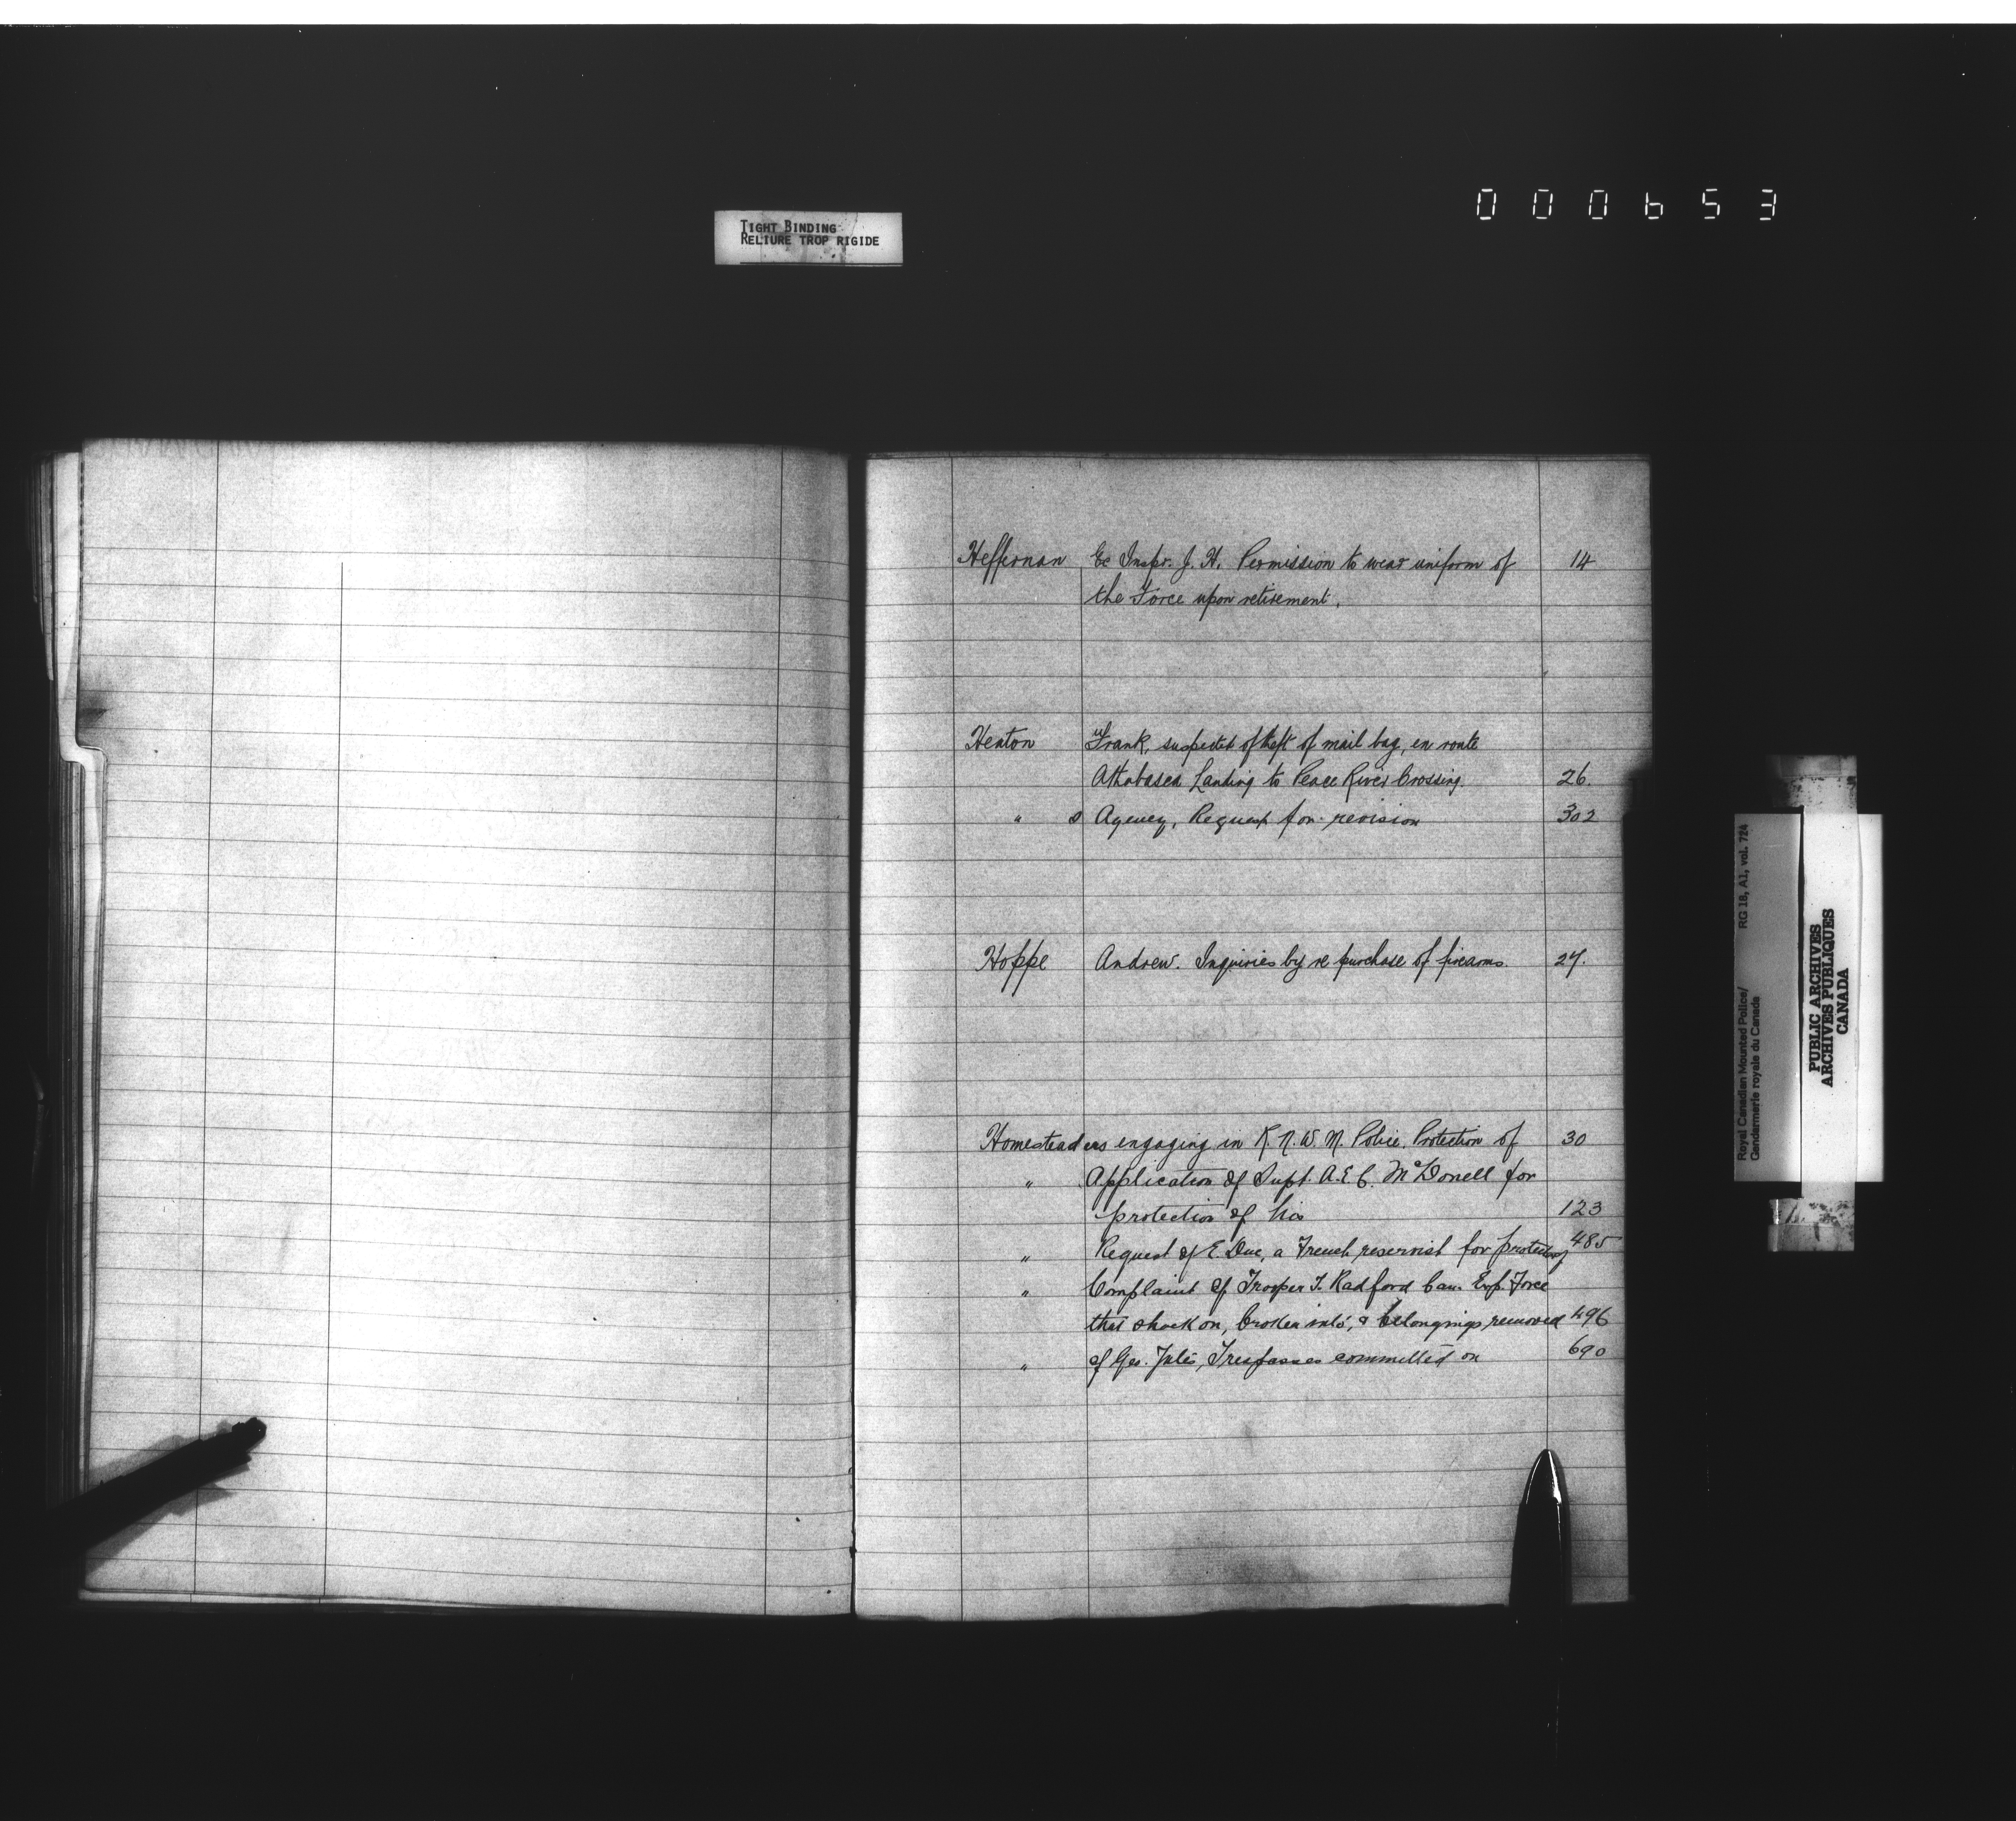 000653
TIGHT BINDING
RELIURE TROP RIGIDE
Heffernan Ex Inspr. J. H. Permission to wear uniform of 14
the Force upon retirement.
Heaton Frank, suspected of theft of mail bag, en route
Athabasca Landing to Peace River Crossing. 26.
" s Agency, Request for revision 302
Hoppe Andrew. Inquiries by re purchase of firearms. 27.
Homesteaders engaging in R. N. W. M. Police. Protection of 30
" Application of Supt. A. E. C. McDonell for
protection of his 123
" Request of E. Duc, a French reservist for protection of 485
" Complaint of Trooper T. Radford Can. Exp. Force
that shack on, broken into, & belongings removed 496
" of Geo. Trespasses committed on 690
Royal Canadian Mounted Police/ RG 18, A1, vol. 724
Gendarmerie royale du Canada
PUBLIC ARCHIVES
ARCHIVES PUBLIQUES
CANADA